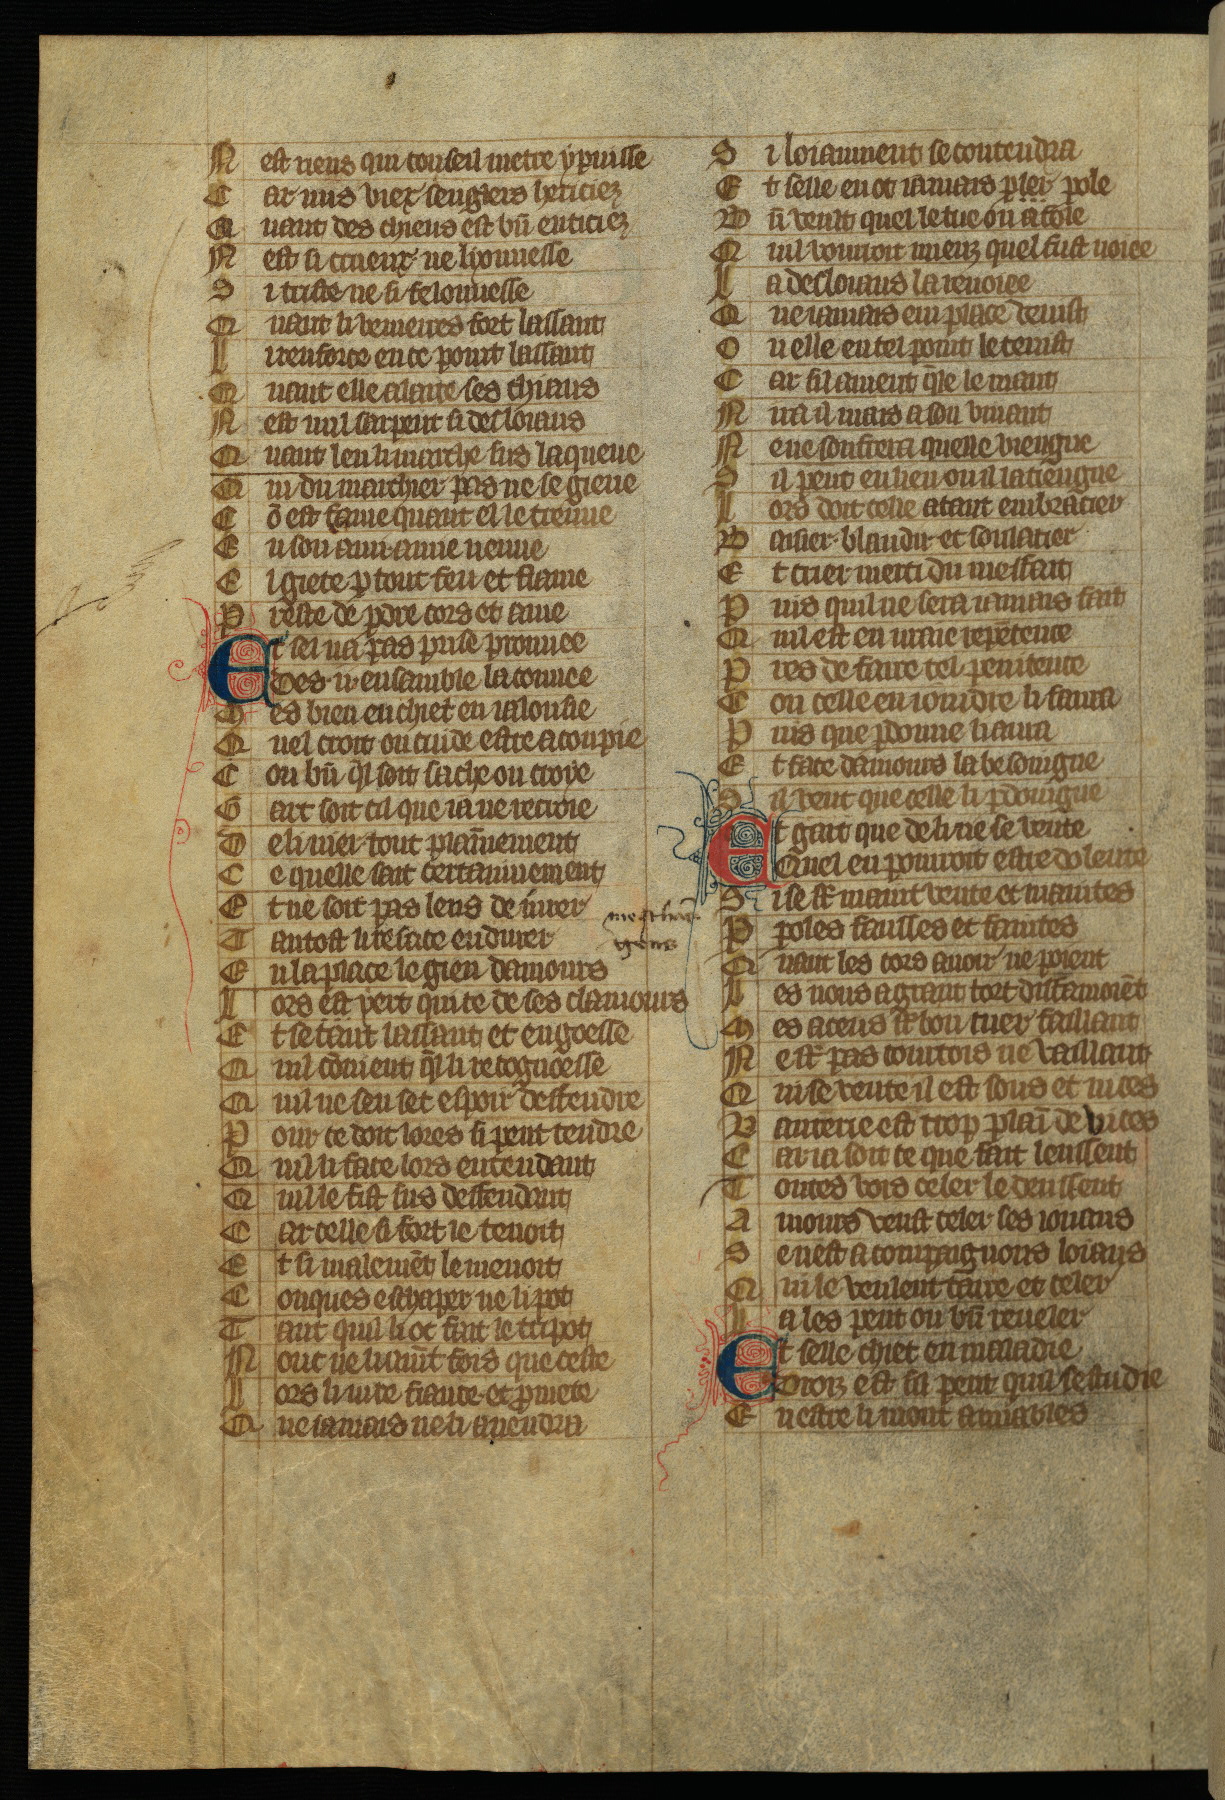 N est riens qui conseil metre y puisse
C ar nus viex sengliers heticiez
Q uant des chiens est bn̄ enticiez
N est si crueux ne lyonnesse
S i triste ne si felonnesse
Q uant li venierres fort lassaut
I i renforce en ce point lassaut
Q uant elle alaite ses chiaus
N est nul sarpent si desloiaus
Q uant len li marche sus la queue
Q ui du marchier pas ne se gieue
C ō est fame quant el le treuue
E u son ami amie neuue
E l giete p tout feu et flame
P reste de pdre cors et ame
Et sel na pas prise prouuee
Des .ii. ensamble la couuee
M es bien en chiet en ialousie
Q uel croit ou cuide estre acoupie
C ou bn̄ ql soit sache ou croye
G art soit cil que ia ne recroie
D e li nier tout plainnement
C e quelle sait certainnement
E t ne soit pas lens de iurer
T antost li reface endurer
E n la place le gieu damours
L ors est pert quite de ses clamours
E t se tant lassaut et engoesse
Q uil cōuient ql li recognoesse
Q uil ne sen set espoir deffendre
P our ce doit lores si peut tendre
Q uil li face lors entendant
Q uil le fist sus deffendant
C ar celle si fort le tenoit
E t si malemēt le menoit
C onques eschaper ne li pot
T ant quil li ot fait le tripot
N onc ne li auīt fors que ceste
L ors li iure fiance et pmete
Q ue iamais ne li auendra
mesch
gens
S i loiaument se contendra
E t selle en ot iamais pler pole
B n̄ veult quel le tue ou afole
Q uil vourroit mieuz quel fust noiee
L a desloiaus la renoiee
Q ue iamais en place venist
O u elle en tel point le tenist
C ar sil auient qle le mant
N ira il mais a son vuiant
N e ne souffrera quelle viengne
S il peut en lieu ou il la tiengne
L ors doit celle atant embracier
B aisier blandir et soulacier
E t crier merci du meffait
P uis quil ne sera iamais fait
Q uil est en uraie repētence
P res de faire tel penitence
C ou celle en ioindre li saura
P uis que pdonne li aura
E t face damours la besoingne
S il veut que celle li pdoingne
Et gart que de li ne se vente
Quel en pourroit estre dolente
S i se st̄ maint vente et maintes
P poles fausses et faintes
Q uant les cors auoir ne poient
L es nous a grant tort diffamoiēt
M es a ceus st̄ bon tuer faillant
N e st̄ pas courtois ne vaillant
Q ui se vente il est fous et nices
V anterie est trop plain de vices
C ar ia soit ce que fait leussent
T outes vois celer le deussent
A mours veust celer ses ioiaus
S e nest a compaignons loiaus
Q ui le veulent taire et celer
L a les peut on bn̄ reueler
Et selle chiet en maladie
Droiz est sil peut quil sestudie
E n estre li mout amiables